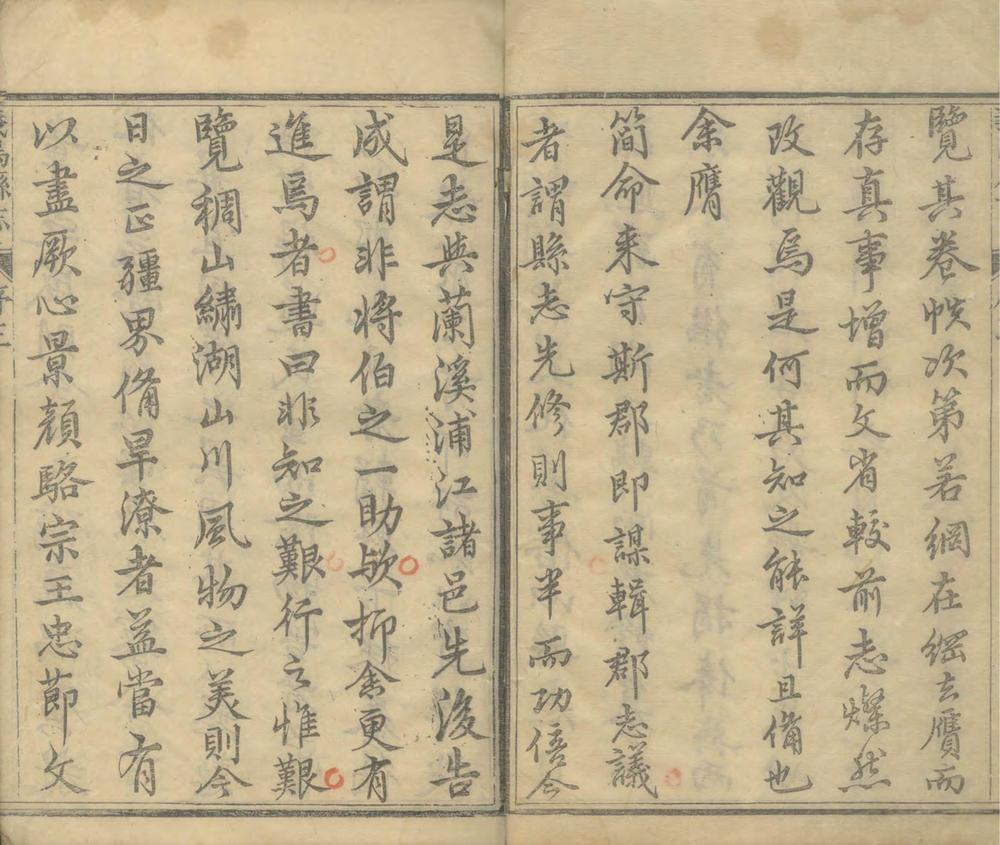 覽其卷帙次第若網在綱去贋而
存真事增而文省較前志燦然
改觀焉是何其知之能詳且備也
余膺
簡命来守斯郡即謀輯郡志議
者謂縣志先修則事半而功倍今
是志與蘭溪浦江諸邑先後告
成謂非將伯之一助歟抑余更有
進焉者書曰非知之艱行之惟艱
覽稠山繡湖山川風物之美則今
日之正疆界備旱潦者益當有
以盡厥心景顏駱宗王忠節文
義烏縣志
序三